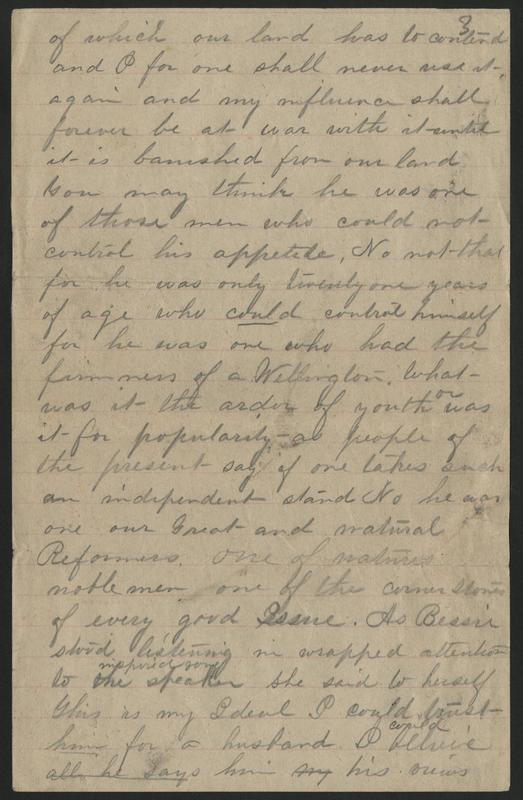 3
of which our land has to contend
and I for one shall never use it,
again and my influence shall
forever be at war with it until
it is banished from our land
You may think he was one
of those men who could not
control his appetide, No not that
for he was only twenty one years
of age who could control himself
for he was one who had the
firmness of a Wellington. What
was it the ardor of youth or was
it for popularity—as people of
the present say if one takes such
an independent stand No he was
one our Great and natural
Reformers. one of natures
noble men one of the corner stones
of every good Issue. As Bessie
stood listening in wrapped attention
to the inspired song speaker she said to herself
This is my Ideal I could trust
him for a husband I could
all he says him my his views